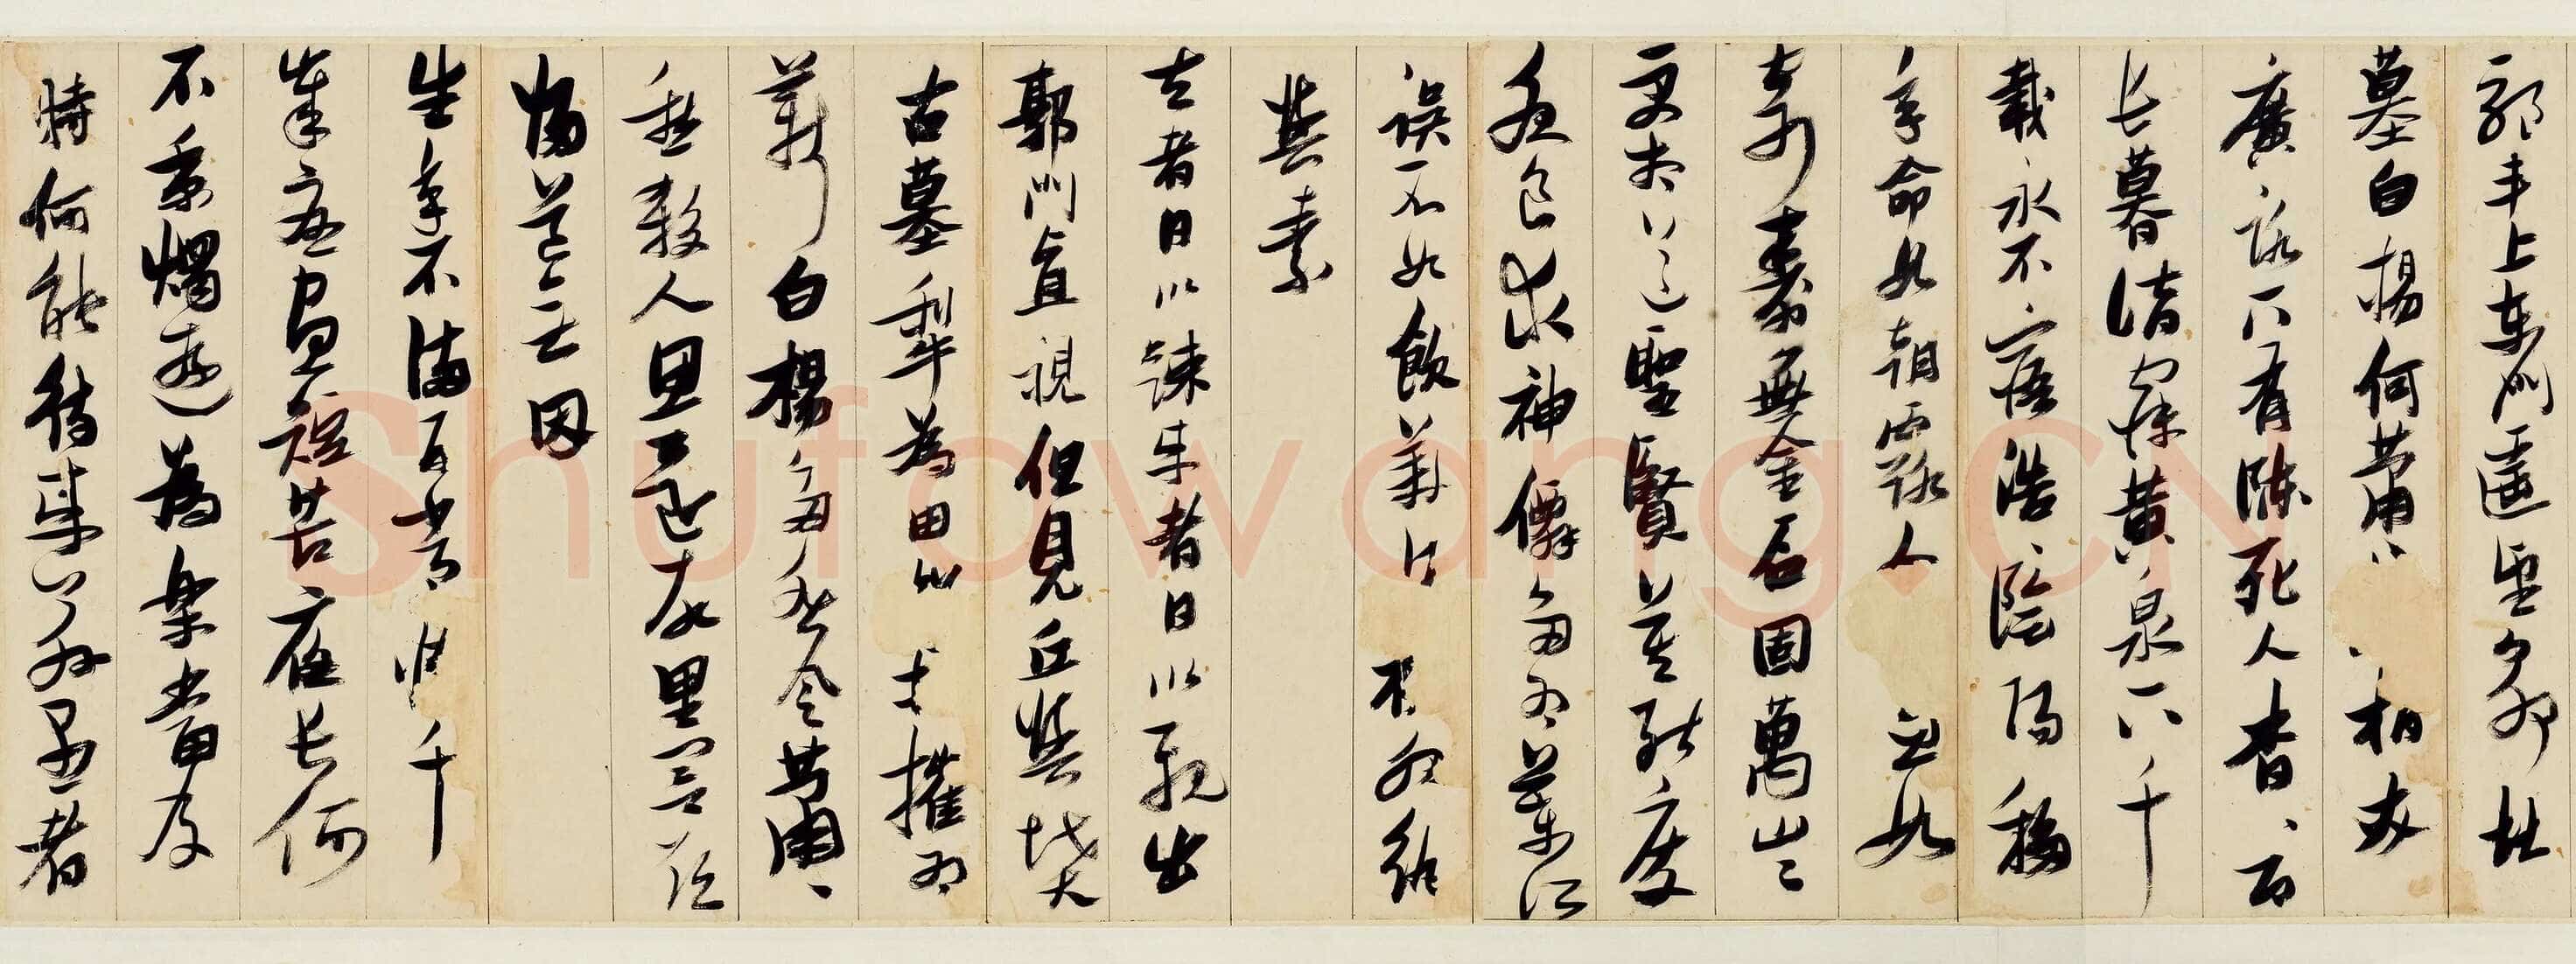 驅車上東門遥望郭北
墓白楊何蕭、柏夾
廣路下有陳死人杳、即
長暮潛寐黄泉下千
載永不寤浩、陰陽移
年命如朝露人忽如
寄壽無金石固萬歲
更相送聖賢莫能度
服食求神僊多為藥所
誤不如飲美酒被服紈
與素
去者日以疎来者日以親出
郭門直視但見丘與墳
古墓犁為田松摧為
薪白楊多悲風蕭、
愁殺人思還故里閭欲
歸道無因
生年不滿百常懷千
歲憂晝短苦夜長何
不秉燭遊為樂當及
時何能待来茲愚者
Shufawang.CN